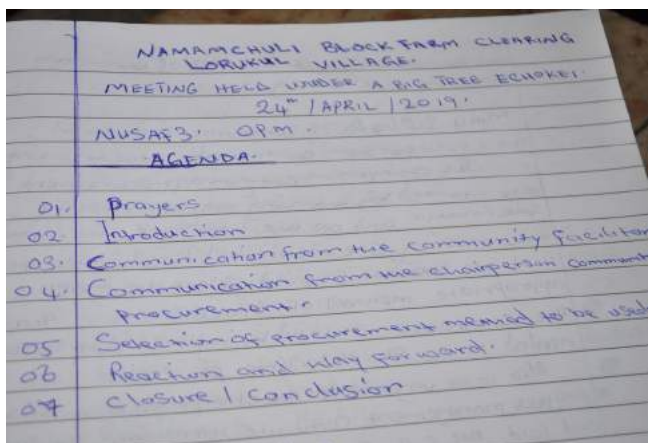 NAMAMCHULI BLOCK FARM CLEARING
LORUKUL VILLAGE.
MEETING HELD UNDER A BIG TREE ECHOKEI.
24TH / APRIL / 2019.
NUSAF3. OPM.
AGENDA.
01. Prayers
02. Introduction
03. Communication from the community facilitor
04. Communication from the chairperson communit
procurement.
05 Selection of procurement method to be used
06 Reaction and way forward.
07 Closure / Conclusion